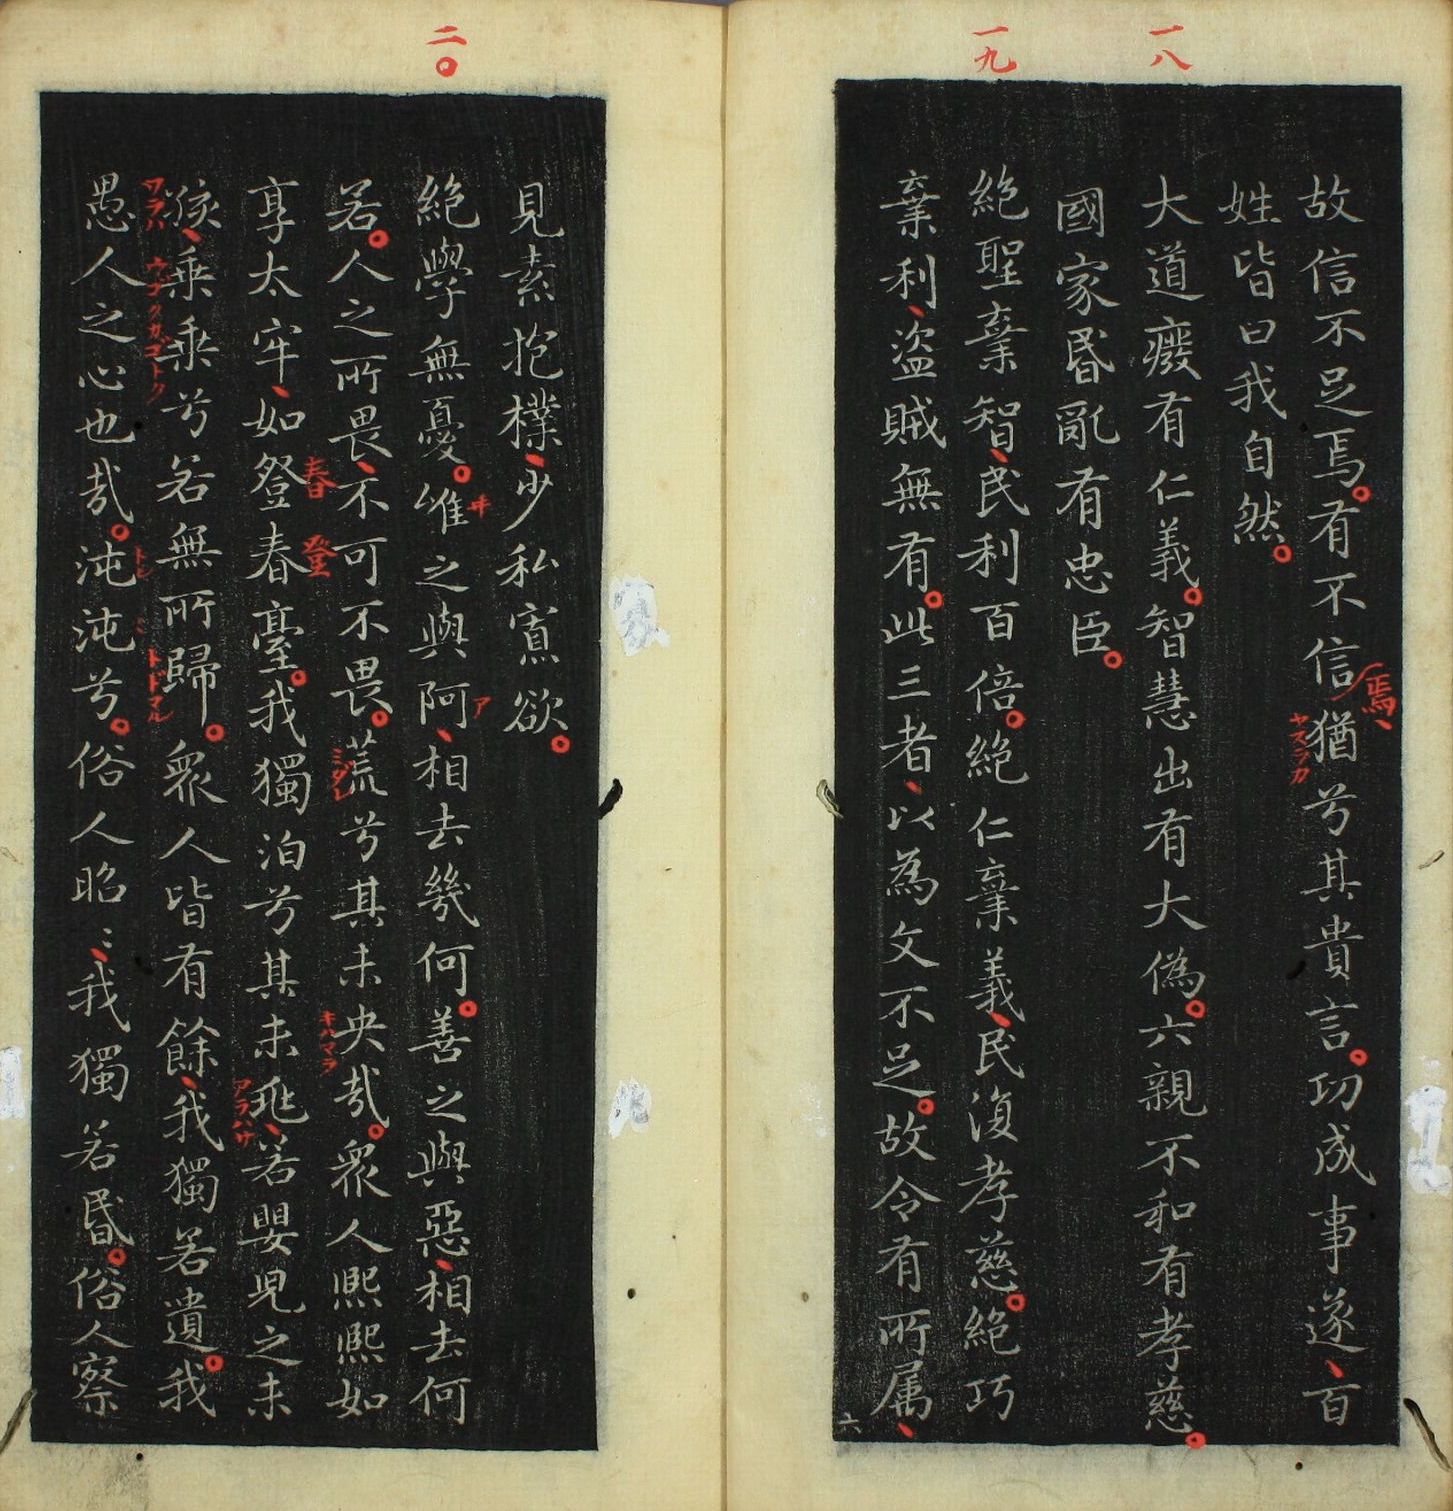 一八
一九
故信不足焉。有不信焉、猶兮其貴言。功成事遂、百
ヤスラカ
姓皆曰我自然。
大道癈有仁義。智慧出有大偽。六親不和有孝慈。
國家昏亂有忠臣。
絕聖棄智、民利百倍。絕仁棄義、民復孝慈。絕巧
棄利、盜賊無有。此三者、以為文不足。故令有所属、
六
二〇
見素抱樸、少私寡欲。
絕學無憂。唯之與阿、相去幾何。善之與惡、相去何
ヰ
ア
若。人之所畏、不可不畏。荒兮其未央哉。衆人熙熙如
ミダレ
キハマラ
享太牢、如登春臺。我獨泊兮其未兆、若嬰兒之未
春登
アラハサ
孩、乗乗兮若無所歸。衆人皆有餘、我獨若遺。我
ワラハ
愚人之心也哉。沌沌兮。俗人昭〻、我獨若昏。俗人察
トドマル